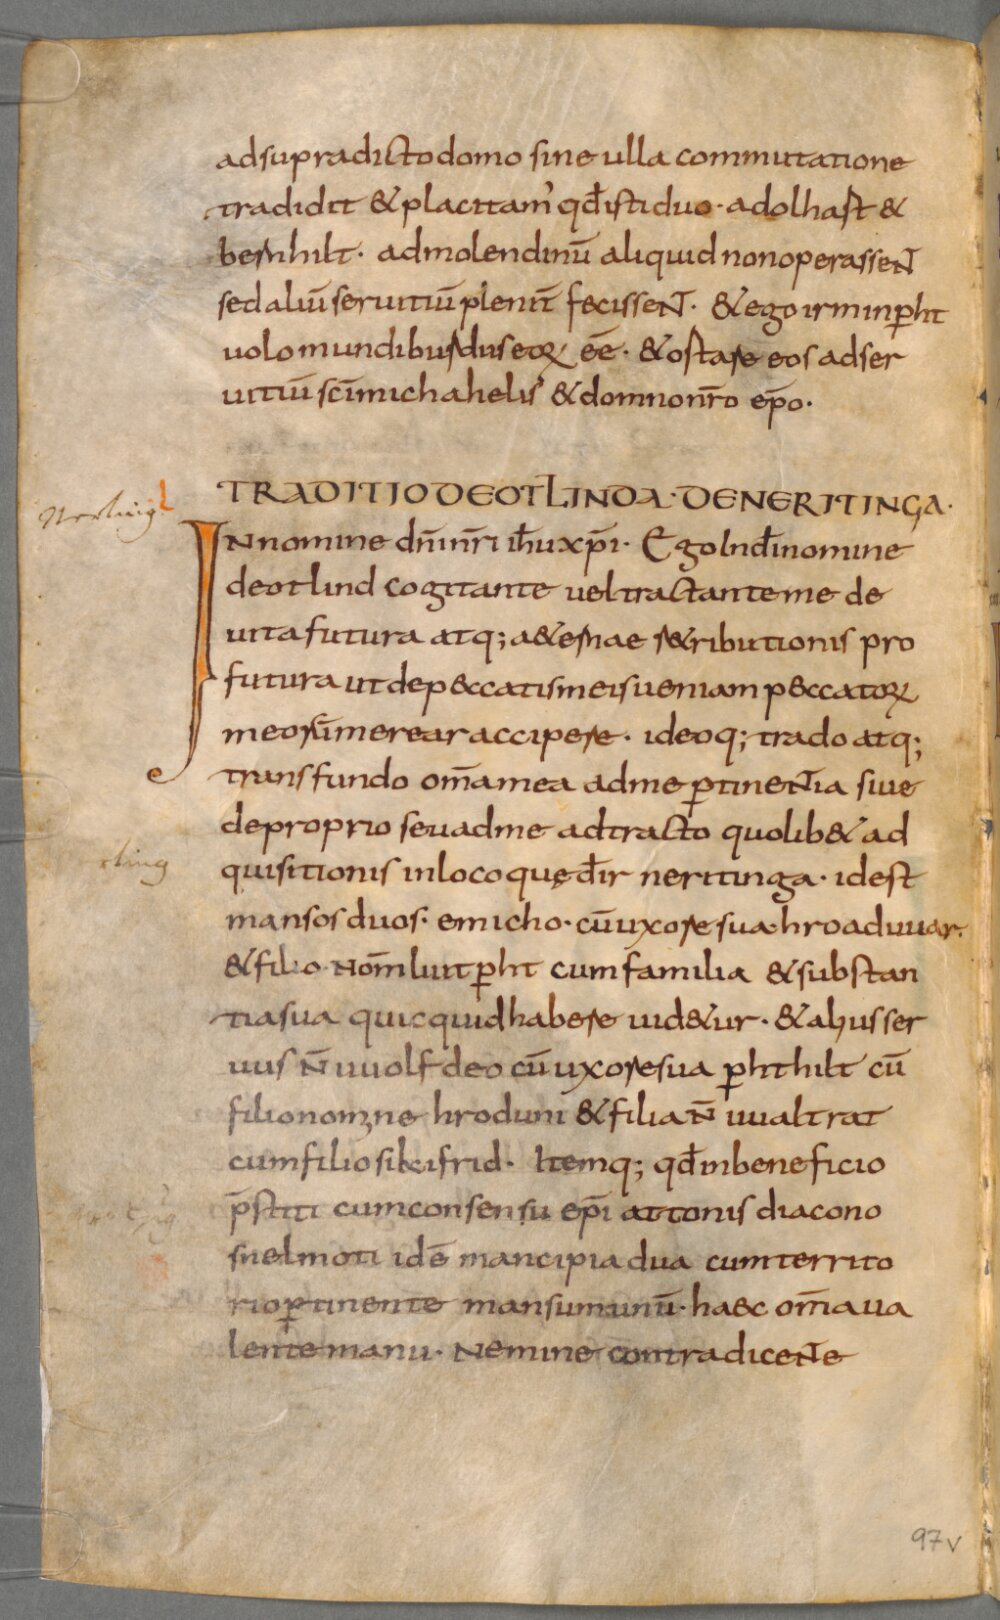 adsupradicto domo sine ulla commutatione
tradidit & placitam' qđ isti duo · adolhast &
bernhilt · ad molendinū aliquid non operassent
sed aliū seruitiū plenit̄ fecissent · & ego irminp̱ht
uolo mundiburdus eoꝝ eē · & ostare eos ad ser
uitiū sc̄i michahelis & domno nr̄o ep̄o ·
TRADITIO DEOTLINDA · DE NERITINGA ·
Nerling
IN nomine dn̄i nr̄i ih̄u xp̄i · Ego In dī nomine
deotlind cogitante uel tractante me de
uita futura atq; a&ernae r&ributionis pro
futura ut de peccatis meis ueniam peccatoꝝ
meorū merear accipere · ideoq; trado atq;
transfundo om̄a mea ad me ꝑtinentia siue
de proprio seu ad me adtracto quolib& ad
quisitionis in loco quę dr̄ neritinga · id est
mansos duos · emicho · cū uxore sua hroaduuar ·
& filio nom̄ luitꝑht cum familia & substan
tia sua quicquid habere uid&ur · & alius ser
uus N̄ uuolfdeo cū uxore sua ꝑhthilt cū
filio nomine hroduni & filia N̄ uualtrat
cum filio sikifrid · Itemq; qđ in beneficio
p̄stiti cum consensu ep̄i attonis diacono
snelmoti idē mancipia dua cum territo
rio ꝑtinente mansum unū · haec om̄a ua
lente manu · Nemine contradicente
97v